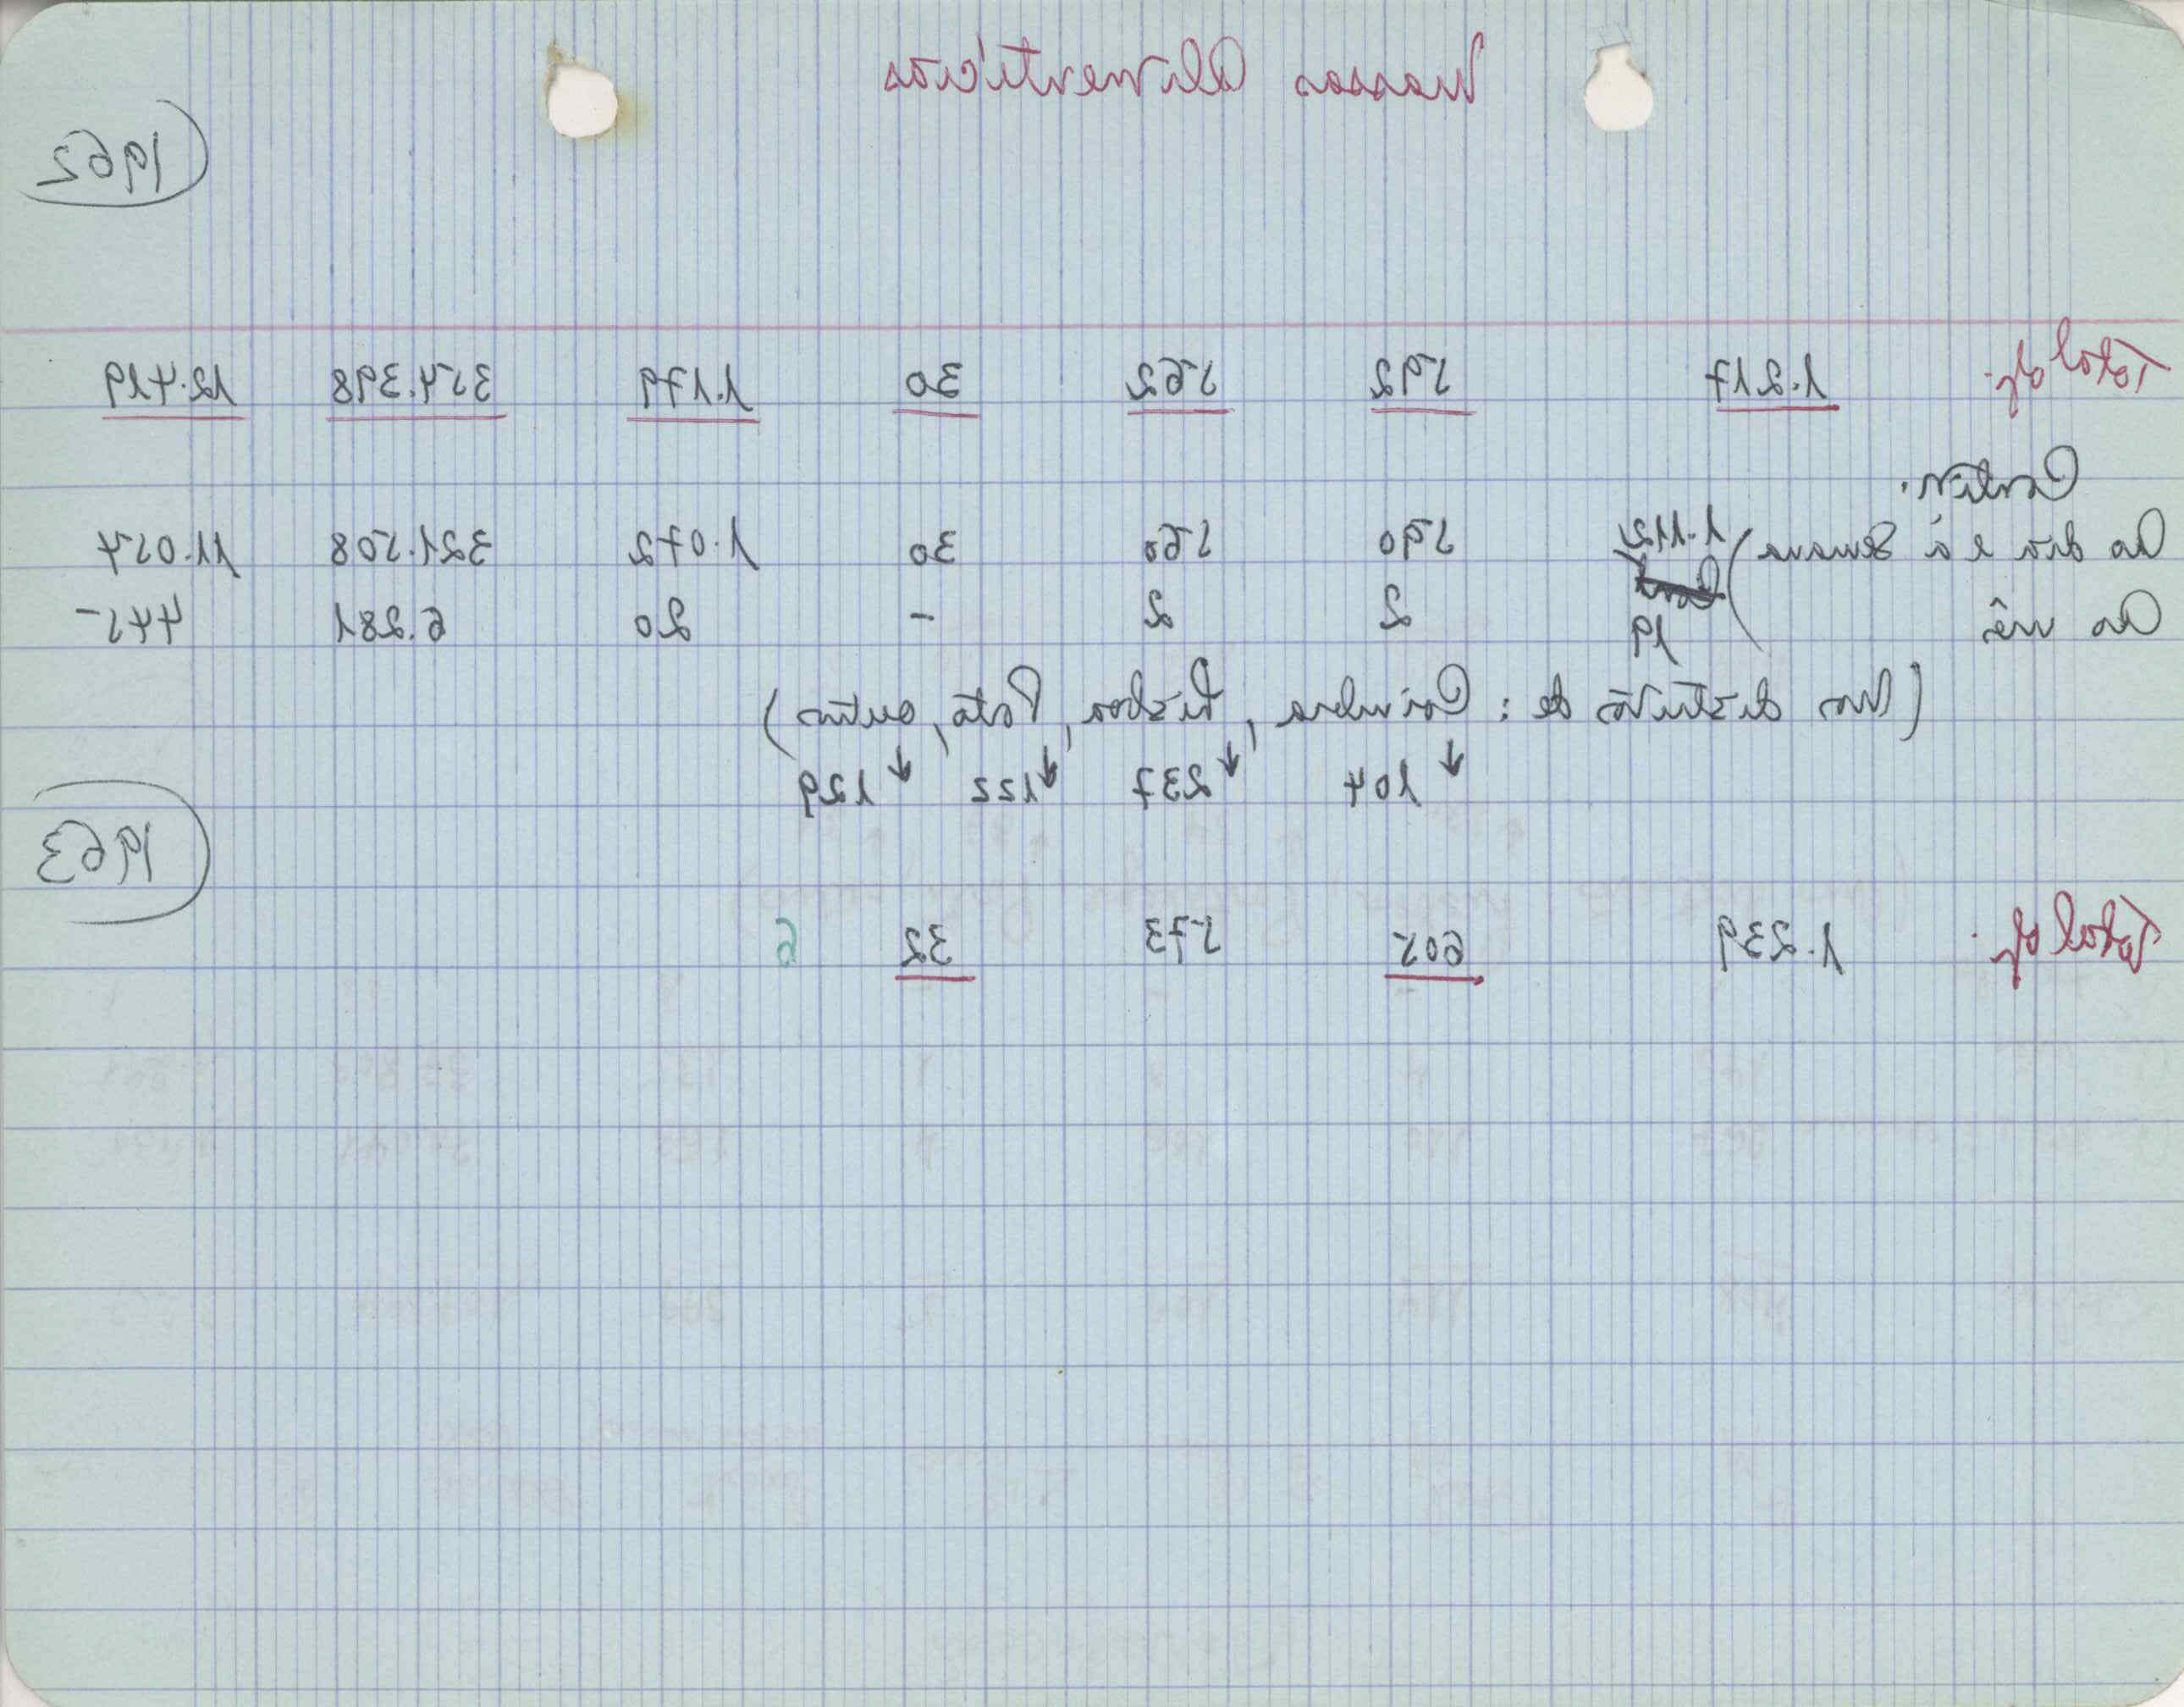 Massas Alimentícias
1962
Total g. 1.217 592 562 30 1.179 354.398 12.419
Contin.
Ao dia e à Semana) 1.112 590 560 30 1.072 321.508 11.054
Ao mês 19 2 2 - 20 6.281 445
(Nos distritos de: Coimbra, Lisboa, Porto, outros)
↓ 104 ↓ 237 ↓ 122 ↓ 129
1963
Total g. 1.239 605 573 32 6